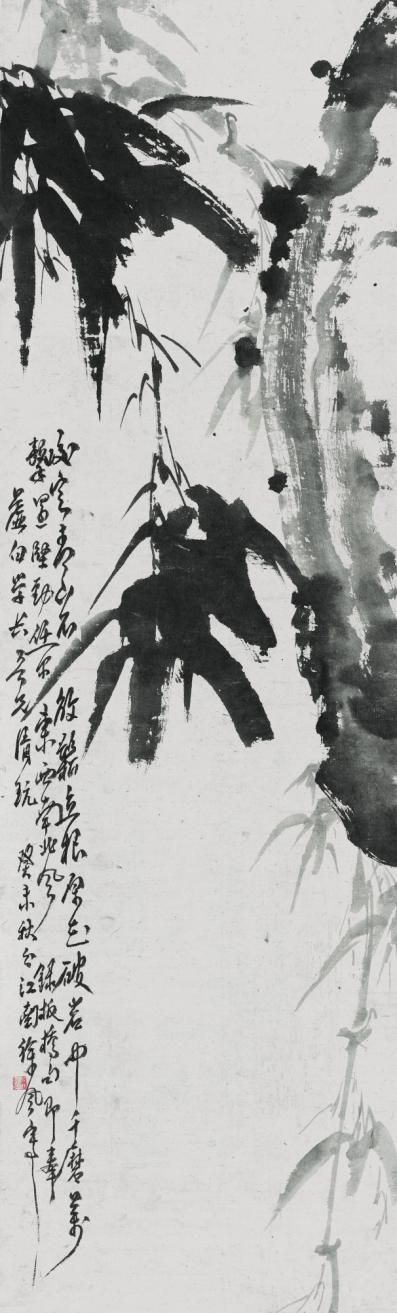 咬定青山不放鬆立根原在破岩中千磨萬
擊還堅勁任爾東西南北風 錄板橋句即奉
虛白學長吾兄清玩 癸未秋江南徐風